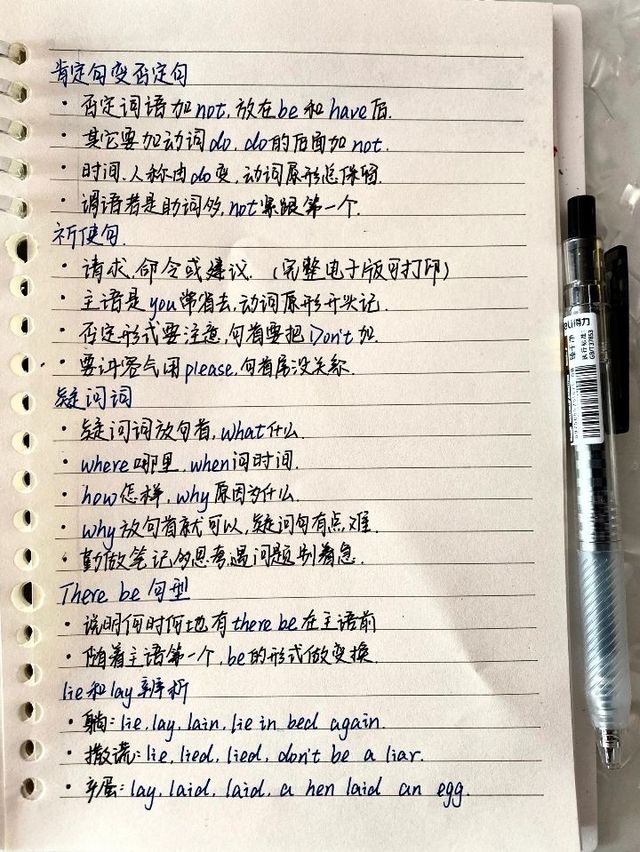 肯定句变否定句
· 否定词语加not,放在be和have后.
· 其它要加动词do,do的后面加not.
· 时间、人称由do变,动词原形总保留.
· 谓语若是助词多,not紧跟第一个.
祈使句.
· 请求、命令或建议.(完整电子版可打印)
· 主语是you常省去,动词原形开头记.
· 否定形式要注意,句首要把Don't加.
· 要讲客气用please,句首句尾没关系.
疑问词
· 疑问词放句首,what什么.
· where哪里,when问时间.
· how怎样,why原因为什么.
· why放句首就可以,疑问句有点难.
· 勤做笔记多思考,遇问题别着急.
There be句型
· 说明何时何地有there be在主语前
· 随着主语第一个,be的形式做变换.
lie和lay辨析
· 躺:lie,lay,lain,lie in bed again.
· 撒谎:lie,lied,lied,don't be a liar.
· 产蛋:lay,laid,laid,a hen laid an egg.
deli得力